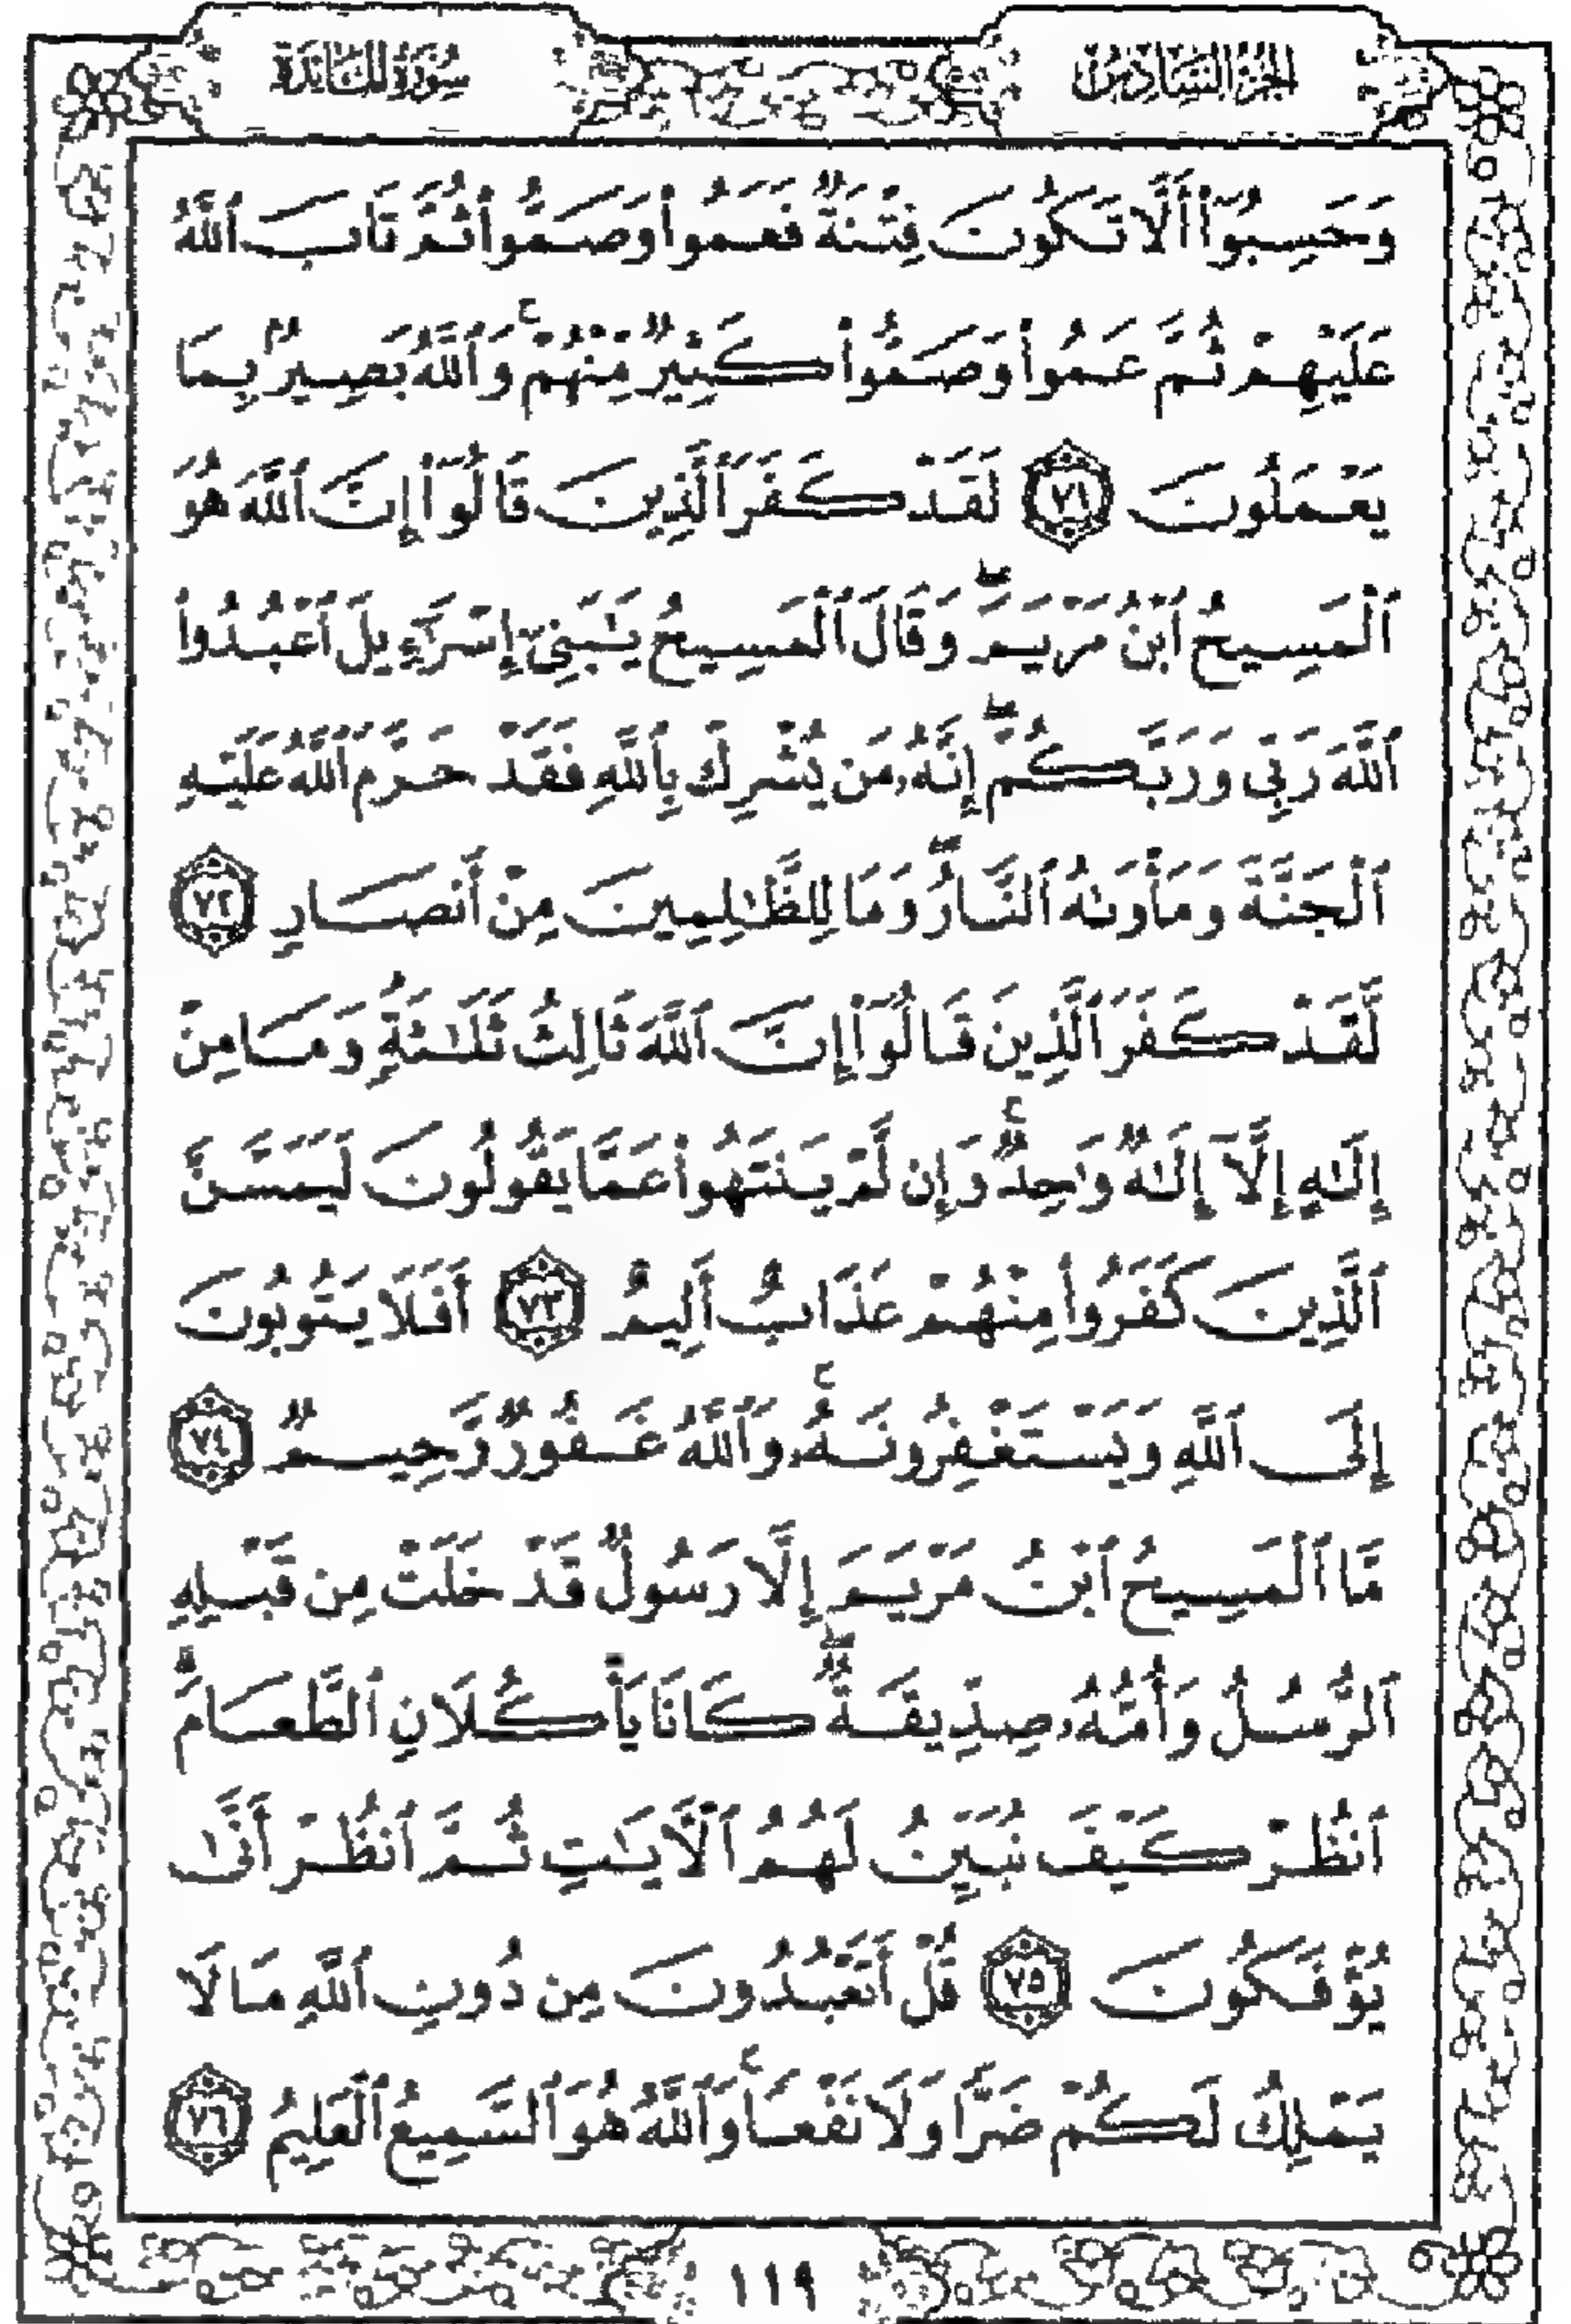 الجزء السادس
سورة المائدة
وَحَسِبُوٓا۟ أَلَّا تَكُونَ فِتْنَةٌ فَعَمُوا۟ وَصَمُّوا۟ ثُمَّ تَابَ ٱللَّهُ
عَلَيْهِمْ ثُمَّ عَمُوا۟ وَصَمُّوا۟ كَثِيرٌ مِّنْهُمْ ۚ وَٱللَّهُ بَصِيرٌۢ بِمَا
يَعْمَلُونَ ٧١ لَقَدْ كَفَرَ ٱلَّذِينَ قَالُوٓا۟ إِنَّ ٱللَّهَ هُوَ
ٱلْمَسِيحُ ٱبْنُ مَرْيَمَ ۖ وَقَالَ ٱلْمَسِيحُ يَـٰبَنِىٓ إِسْرَٰٓءِيلَ ٱعْبُدُوا۟
ٱللَّهَ رَبِّى وَرَبَّكُمْ ۖ إِنَّهُۥ مَن يُشْرِكْ بِٱللَّهِ فَقَدْ حَرَّمَ ٱللَّهُ عَلَيْهِ
ٱلْجَنَّةَ وَمَأْوَىٰهُ ٱلنَّارُ ۖ وَمَا لِلظَّـٰلِمِينَ مِنْ أَنصَارٍ ٧٢
لَّقَدْ كَفَرَ ٱلَّذِينَ قَالُوٓا۟ إِنَّ ٱللَّهَ ثَالِثُ ثَلَـٰثَةٍ ۘ وَمَا مِنْ
إِلَـٰهٍ إِلَّآ إِلَـٰهٌ وَٰحِدٌ ۚ وَإِن لَّمْ يَنتَهُوا۟ عَمَّا يَقُولُونَ لَيَمَسَّنَّ
ٱلَّذِينَ كَفَرُوا۟ مِنْهُمْ عَذَابٌ أَلِيمٌ ٧٣ أَفَلَا يَتُوبُونَ
إِلَى ٱللَّهِ وَيَسْتَغْفِرُونَهُۥ ۚ وَٱللَّهُ غَفُورٌ رَّحِيمٌ ٧٤
مَّا ٱلْمَسِيحُ ٱبْنُ مَرْيَمَ إِلَّا رَسُولٌ قَدْ خَلَتْ مِن قَبْلِهِ
ٱلرُّسُلُ وَأُمُّهُۥ صِدِّيقَةٌ ۖ كَانَا يَأْكُلَانِ ٱلطَّعَامَ ۗ
ٱنظُرْ كَيْفَ نُبَيِّنُ لَهُمُ ٱلْـَٔايَـٰتِ ثُمَّ ٱنظُرْ أَنَّىٰ
يُؤْفَكُونَ ٧٥ قُلْ أَتَعْبُدُونَ مِن دُونِ ٱللَّهِ مَا لَا
يَمْلِكُ لَكُمْ ضَرًّا وَلَا نَفْعًا ۚ وَٱللَّهُ هُوَ ٱلسَّمِيعُ ٱلْعَلِيمُ ٧٦
١١٩